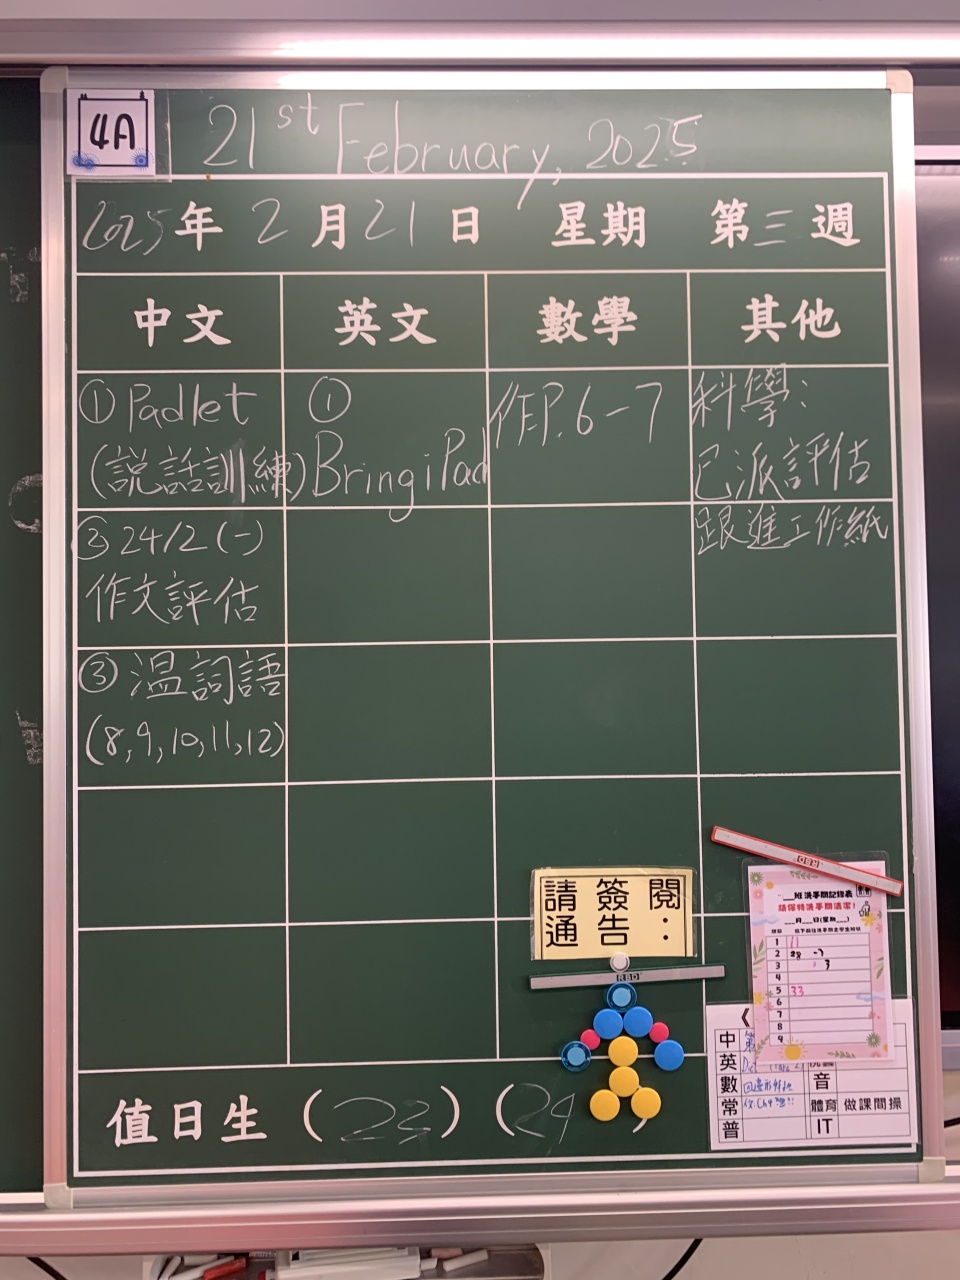 4A
21st February, 2025
2025年2月21日 星期 第三週
中文 英文 數學 其他
①Padlet
(説話訓練)
②24/2(一)
作文評估
③温詞語
(8,9,10,11,12)
①
Bring iPad
作P.6-7
科學:
已派評估
跟進工作紙
請簽閱
通告:
RBD
RBD
班洗手間記錄表
請保持洗手間清潔!
月 日(星期 )
1 11
2 28 -7
3 3
4
5 33
6
7
8
9
中 第
英
數
常
普
音
體育 做課間操
IT
值日生 (23) (24